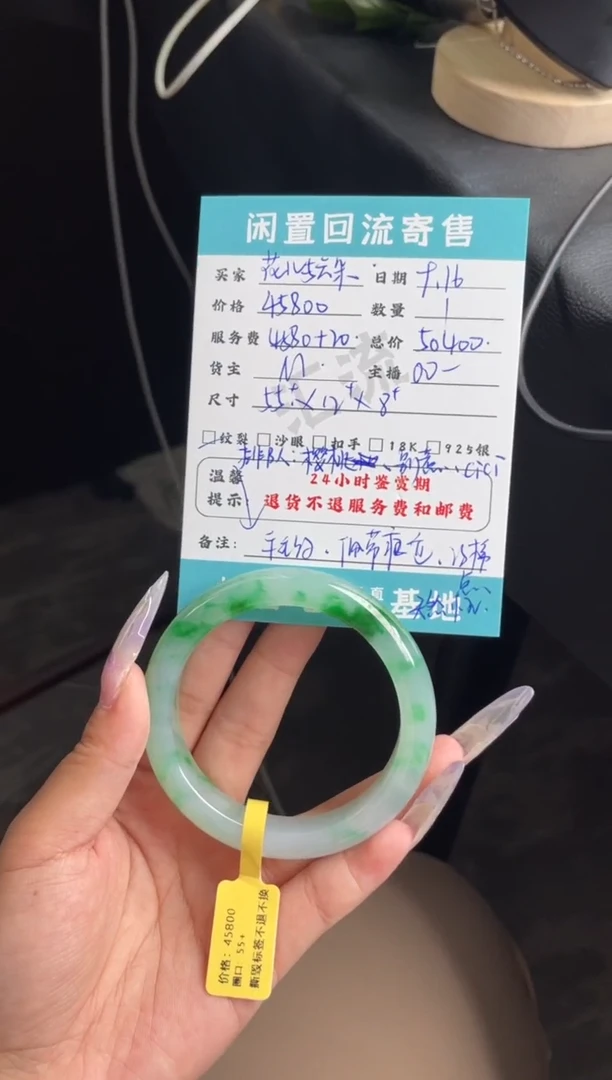 闲置回流寄售
买家 花儿与云朵 日期 9.16
价格 45800 数量 1
服务费 4580+20 总价 50400.
货主 M 主播 00一
尺寸 55⁺×12⁺×8⁺
汇流
□纹裂 □沙眼 □扣手 □18K □925银
温馨提示
24小时鉴赏期
退货不退服务费和邮费
备注:
基地
价格:45800
圈口:55+
撕毁标签不退不换